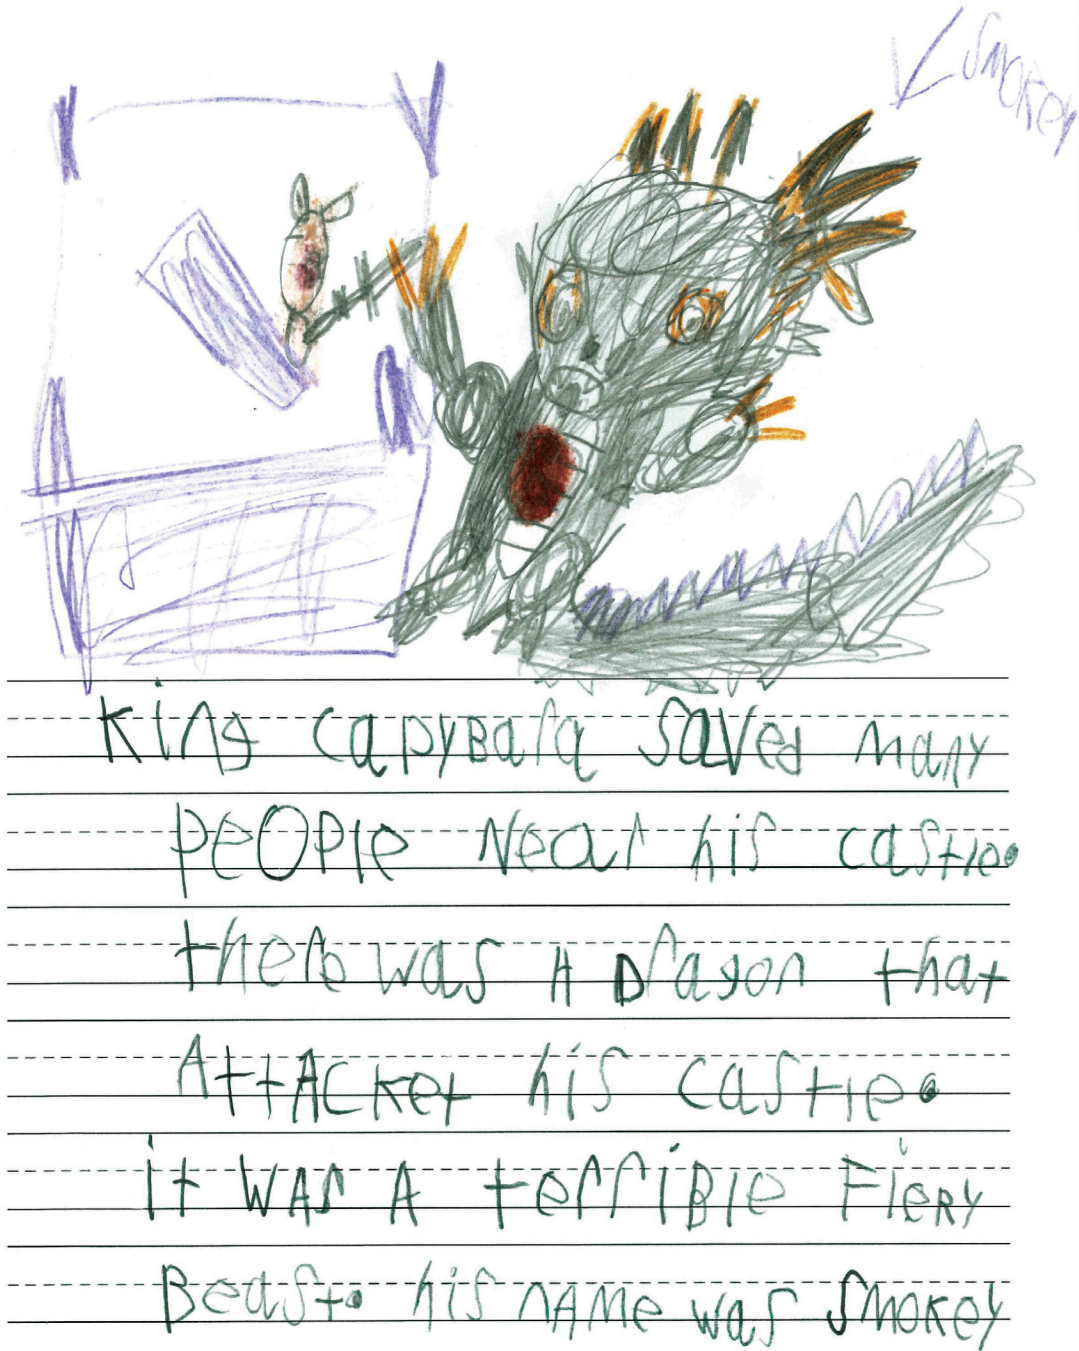 Smokey
King capyBara saved many
peOPle Near his castle.
there was A Dragon that
AttACket his castle.
it WAs A terriBle FieRy
Beast. his nAMe was Smokey